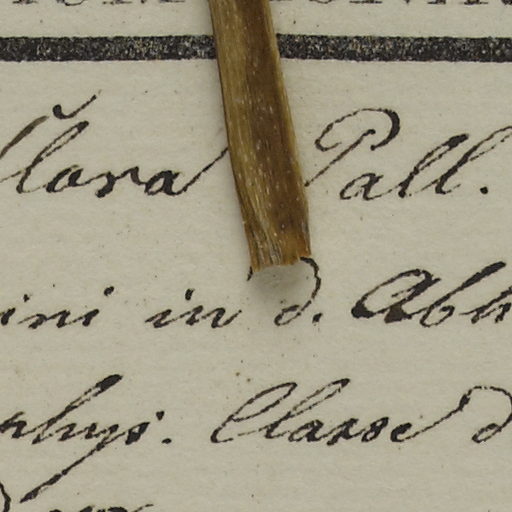 flora Pall.
ini in d. Abh
phys. Classe d